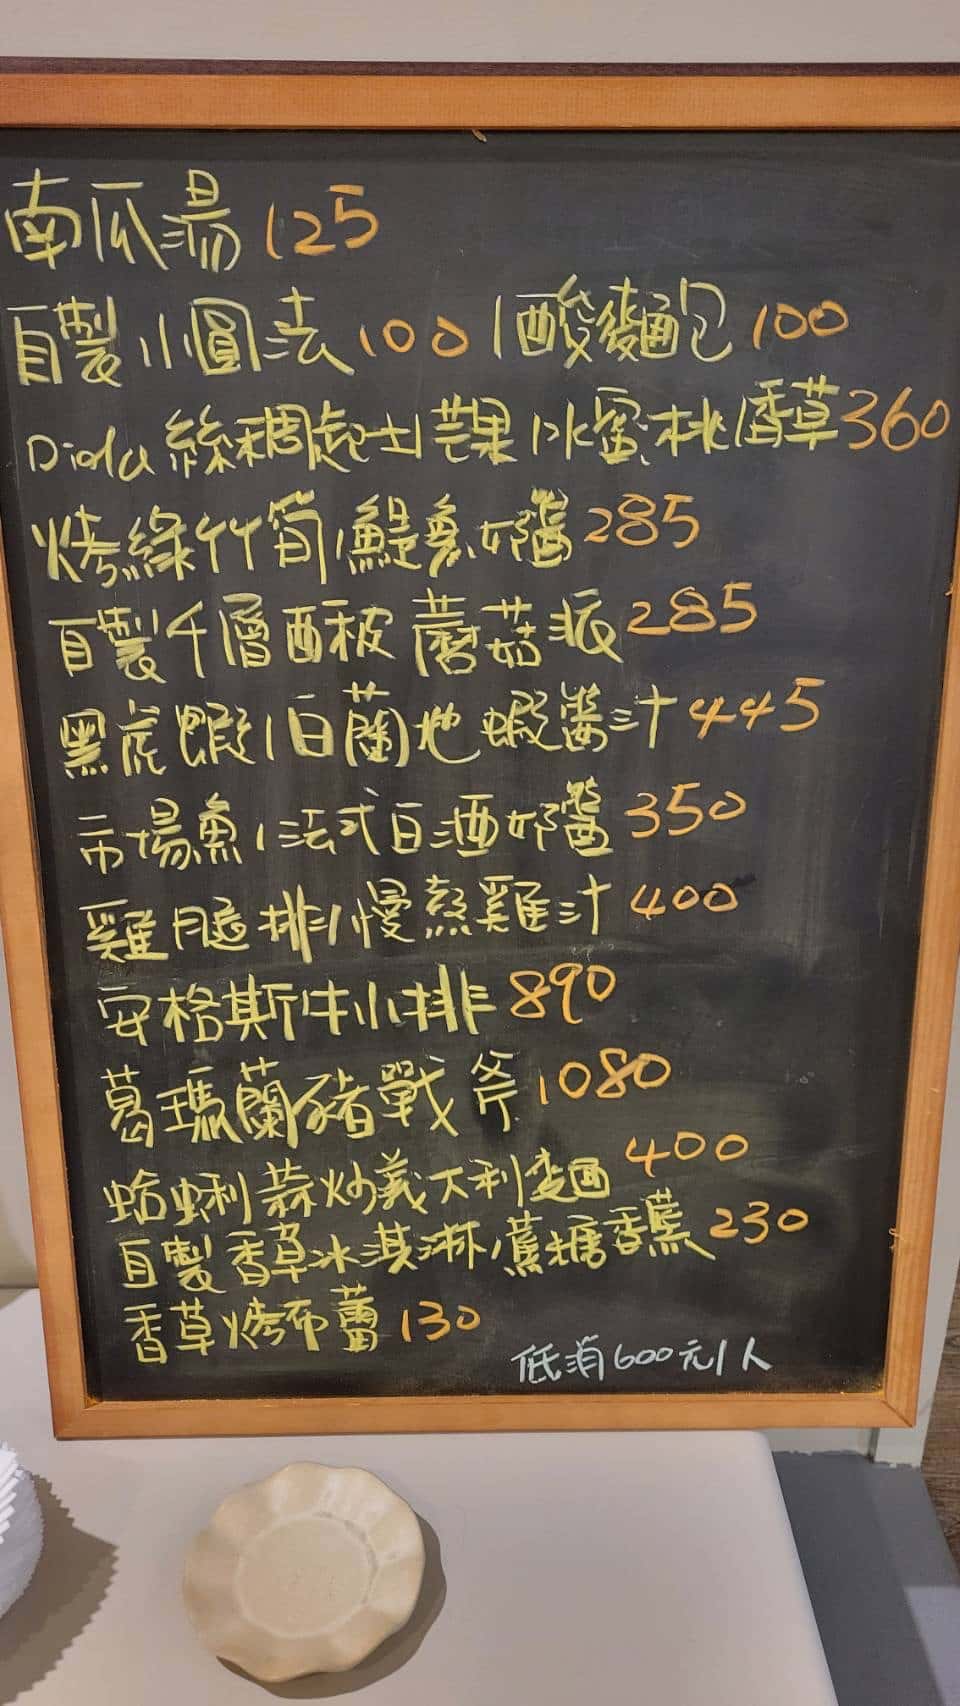 南瓜湯 125
自製小圓法 100 / 酸麵包 100
Dida 絲稠起士芒果/水蜜桃/香草 360
烤綠竹筍/鯷魚奶醬 285
自製千層酥皮蘑菇派 285
黑虎蝦/白蘭地蝦醬汁 445
市場魚/法式白酒奶醬 350
雞腿排/慢熬雞汁 400
安格斯牛小排 890
葛瑪蘭豬戰斧 1080
蛤蜊蒜炒義大利麵 400
自製香草冰淇淋/蔗糖香蕉 230
香草烤布蕾 130
低消600元/人